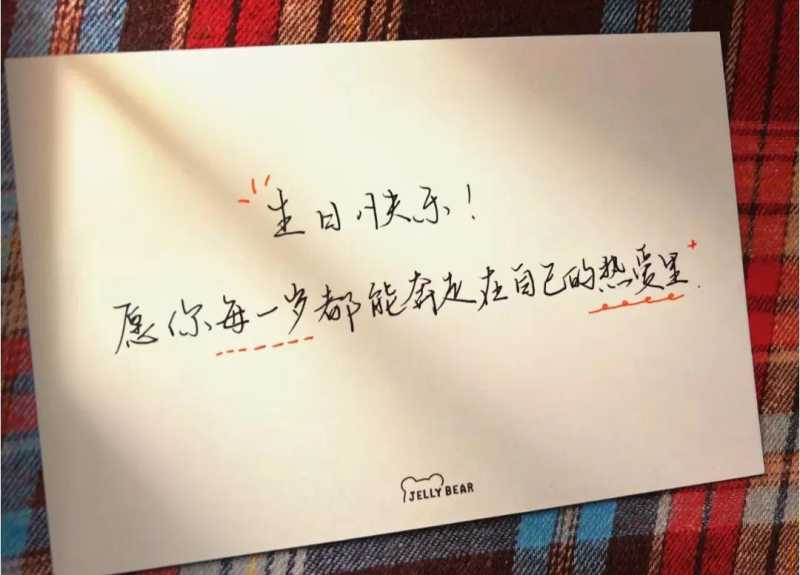 生日快乐!
愿你每一岁都能奔赴在自己的热爱里.
JELLY BEAR